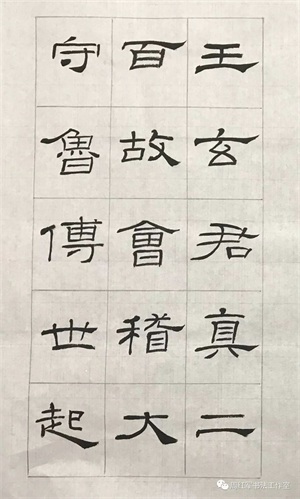 王玄君真二
百故會稽大
守魯傅世起